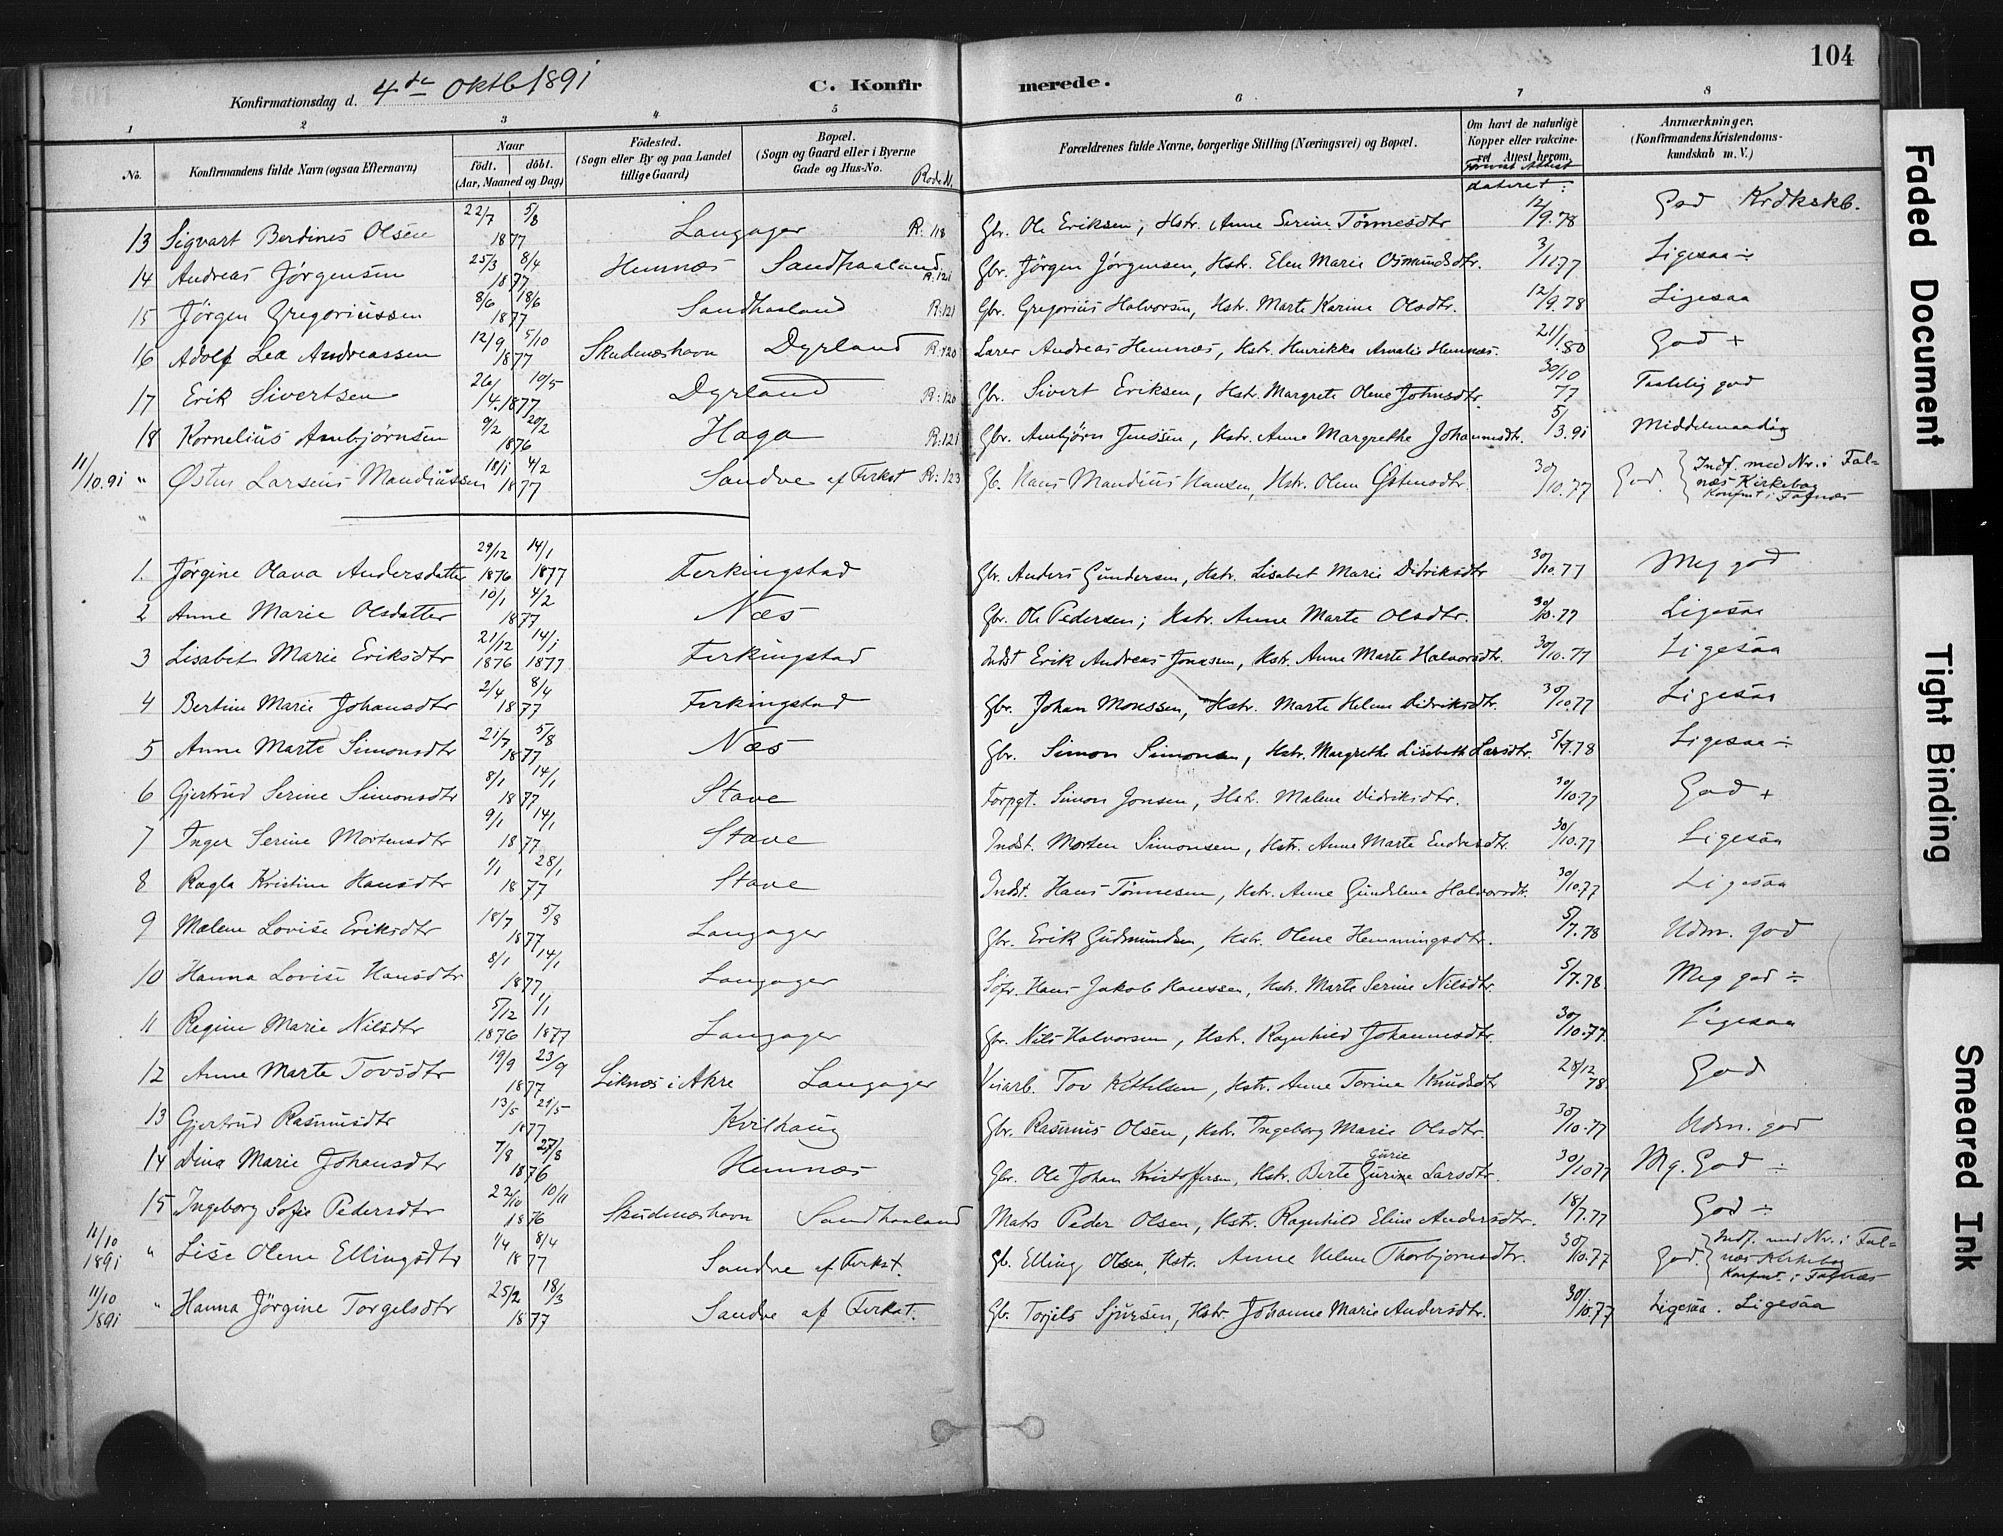 104
Konfirmationsdag d. 4de Oktb 1891 C. Konfirmerede.
1 2 3 4 5 6 7 8
No. Konfirmandens fulde Navn (ogsaa Efternavn) Naar født. døbt. (Aar, Maaned og Dag) Fødested. (Sogn eller By og paa Landet tillige Gaard) Bopæl. (Sogn og Gaard eller i Byerne Gade og Hus-No. Rode N. Forældrenes fulde Navne, borgerlige Stilling (Næringsvei) og Bopæl. Om havt de naturlige Kopper eller vakcineret Attest herom dateret: Anmærkninger. (Konfirmandens Kristendomskundskab m. V.)
13 Sigvart Berdines Olsen 22/7 5/8 1877 Langager R. 118 Gbr. Ole Eriksen, Hstr. Anne Serine Tønnesdtr 12/9.78 God Krdkskb.
14 Andreas Jørgensen 25/3 8/4 1877 Hemnæs Sandhaaland R. 121 Gbr. Jørgen Jørgensen, Hstr. Elen Marie Osmundsdtr. 3/1077 Ligesaa ÷
15 Jørgen Gregoriussen 8/6 18/6 1877 Sandhaaland R. 121 Gbr. Gregorius Halvorsen, Hstr. Marte Karine Olsdtr. 12/9.78 Ligesaa
16 Adolf Lea Andreassen 12/9 5/10 1877 Skudeneshavn Dyrland R. 120 Lærer Andreas Hemnæs, Hstr. Henrikka Amalie Hemnæs. 21/1.80 God +
17 Erik Sivertsen 26/4. 10/5 1877 Dyrland R. 120 Gbr. Sivert Eriksen, Hstr. Margrete Olene Johnsdtr. 30/10 77 Taalelig god
18 Kornelius Ambjørnsen 9/2 20/2 1876 Haga R. 121 Gbr. Ambjørn Jenssen, Hstr. Anne Margrethe Johannsdtr. 5/3.91 Middelmaadig
11/10.91 " Østen Larseus Mandiussen 18/1 4/2 1877 Sandve af Ferkst R. 123 Gb. Hans Mandius Hansen, Hstr. Olene Østensdtr. 30/10.77 God. Indf. med Nr. i Falnæs Kirkebog Konfmt i Falnæs
"
1. Jørgine Olava Andersdatter 29/12 1876 14/1 1877 Ferkingstad Gbr. Anders Gundersen, Hstr. Lisabet Marie Didriksdtr 30/10.77 Meg god
2 Anne Marie Olsdatter 10/1 4/2 1877 Næs Gbr. Ole Pedersen, Hstr. Anne Marte Olsdtr. 30/10.77 Ligesaa
3 Lisabet Marie Eriksdtr 21/12 1876 14/1 1877 Ferkingstad Indst Erik Andreas Jonassen, Hstr. Anne Marte Halvorsdtr. 30/10.77 Ligesaa
4 Bertine Marie Johansdtr 2/4 8/4 1877 Ferkingstad Gbr. Johan Monssen, Hstr. Marte Helene Didriksdtr. 30/10.77 Ligesaa
5 Anne Marte Simonsdtr 21/7 5/8 1877 Næs Gbr. Simon Simonsen, Hstr. Margrethe Lisebeth Larsdtr. 5/9.78 Ligesaa ÷
6 Gjertrud Serine Simonsdtr 8/1 14/1 1877 Stave Forpgt. Simon Jonsen, Hstr. Malene Didriksdtr. 30/10.77 God +
7 Inger Serine Mortensdtr 9/1 14/1 1877 Stave Indst. Morten Simonsen, Hstr. Anne Marte Endresdtr. 30/10.77 Ligesaa
8 Ragla Kristine Hansdtr 1/1 28/1 1877 Stave Indst. Hans Tønnesen, Hstr. Anne Gundelene Halvorsdtr. 30/10.77 Ligesaa
9 Malene Lovise Eriksdtr 18/7 5/8 1877 Langager Gbr. Erik Gudmundsen, Hstr. Olene Hemmingsdtr. 5/7.78 Udm. god
10 Hanna Lovise Hansdtr 8/1 14/1 1877 Langager Søfr. Hans Jakob Hanssen, Hstr. Marte Serine Nilsdtr. 5/7.78 Meg god ÷
11 Regine Marie Nilsdtr 5/12 1876 1/1 1877 Langager Gbr. Nils Halvorsen, Hstr. Ragnhild Johannesdtr. 30/10.77 Ligesaa
12 Anne Marte Tovsdtr 19/9 23/9 1877 Liknæs i Akre Langager Veiarb. Tov Ketilsen, Hstr. Anne Torine Knudsdtr 28/12 78 God
13 Gjertrud Rasmusdtr 13/5 21/5 1877 Kvilhaug Gbr. Rasmus Olsen, Hstr. Ingeborg Marie Olsdtr. 30/10.77 Udm. god
14 Dina Marie Johansdtr 7/8 27/8 1876 Hemnæs Gbr. Ole Johan Kristoffersen, Hstr. Berte Gurine Gurie Larsdtr. 30/1077 Mg. God ÷
15 Ingeborg Sofie Pedersdtr 22/10 10/11 1876 Skudeneshavn Sandhaaland Matrs Peder Olsen, Hstr. Ragnhild Eline Andersdtr. 18/7.77 God ÷
11/10 1891 " Lise Olene Ellingsdtr 1/4 8/4 1877 Sandve af Ferkst. Gb. Elling Olsen, Hstr. Anne Helene Thorbjørnsdtr. 30/10.77 God. Indf. med Nr. i Falnæs Kirkebog Konfmt. i Falnæs
11/10 1891 " Hanna Jørgine Torgelsdtr 25/2 18/3 1877 Sandve af Ferkst. Gb. Torjels Sjursen, Hstr. Johanne Marie Andersdtr. 30/10.77 Ligesaa. Ligesaa
Faded Document
Tight Binding
Smeared Ink